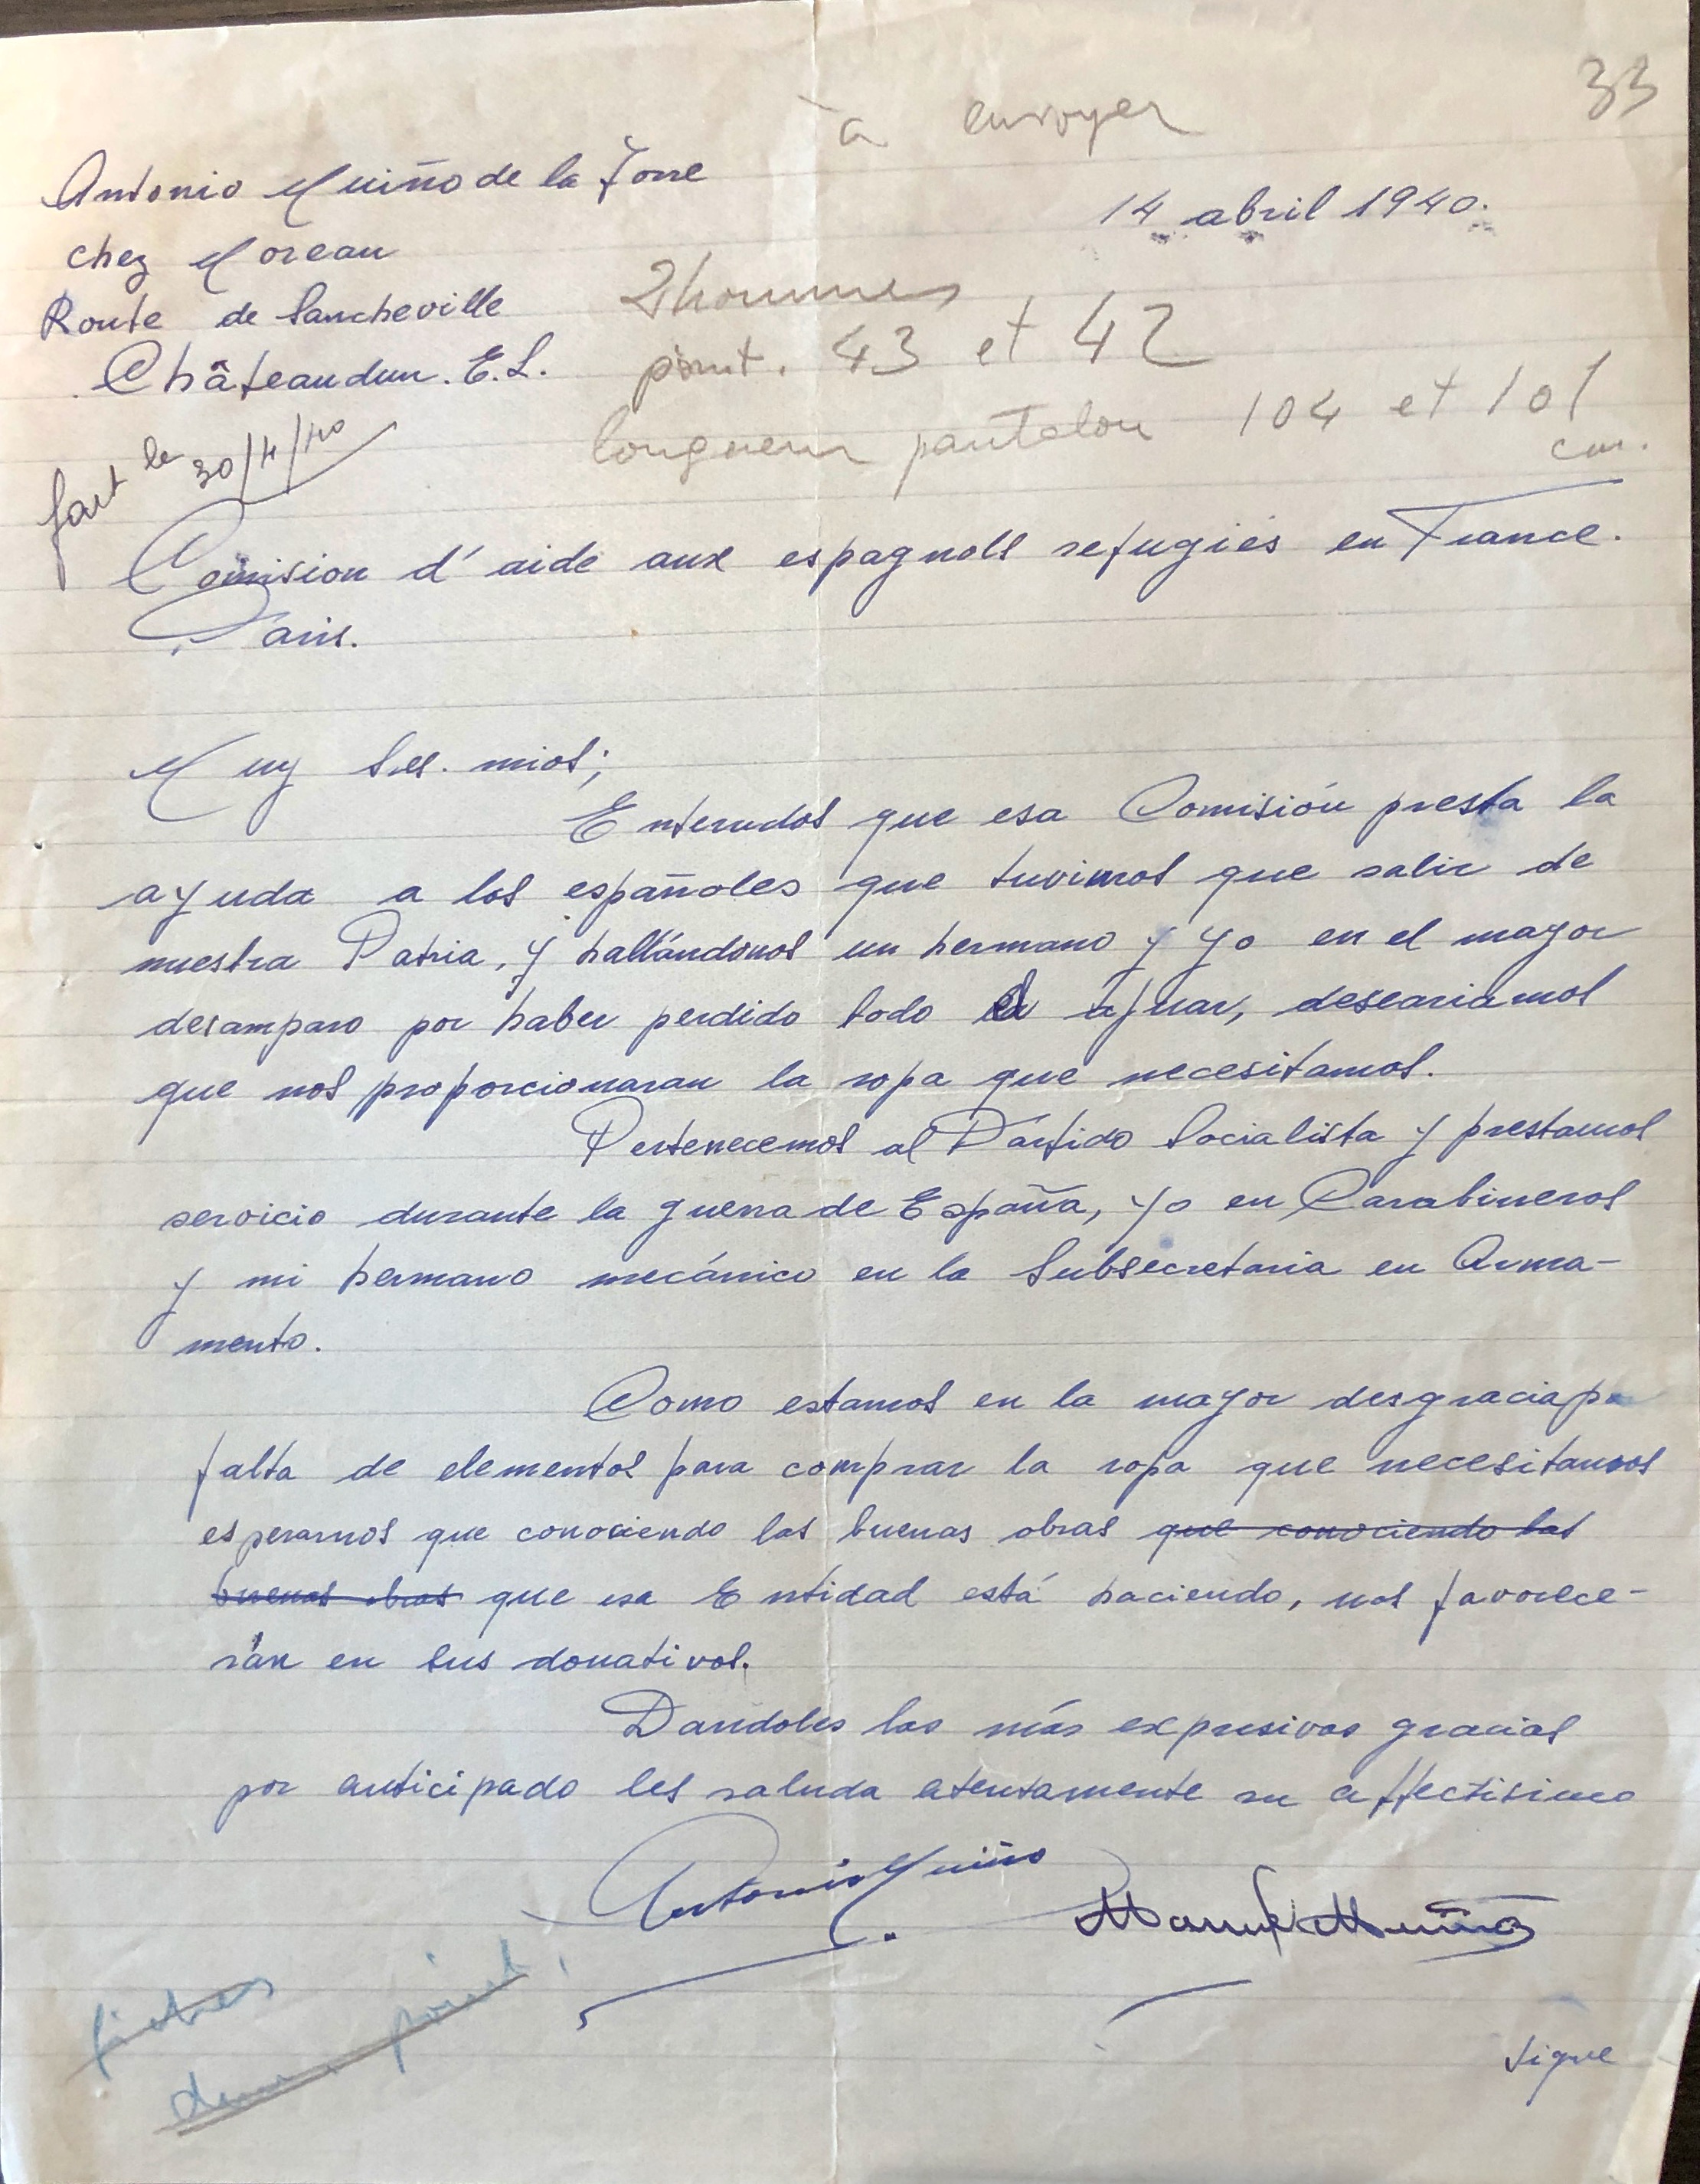 33
à envoyer
Antonio Muiño de la Torre
14 abril 1940.
chez Moreau
Route de Sancheville
Châteaudun. E.L.
2 hommes
point. 43 et 42
longueur pantalon 104 et 101
cm.
fait le 30/4/40
Comision d'aide aux espagnols refugiés en France.
Paris.
Muy Sres. mios;
Enterados que esa Comisión presta la
ayuda a los españoles que tuvimos que salir de
nuestra Patria, y hallándonos un hermano y yo en el mayor
desamparo por haber perdido todo el ajuar, deseariamos
que nos proporcionaran la ropa que necesitamos.
Pertenecemos al Partido Socialista y prestamos
servicio durante la guerra de España, yo en Carabineros
y mi hermano mecánico en la Subsecretaria en Arma-
mento.
Como estamos en la mayor desgracia po
falta de elementos para comprar la ropa que necesitamos
esperamos que conociendo las buenas obras que conociendo las
buenas obras que esa Entidad está haciendo, nos favorece-
rán en sus donativos.
Dandoles las más expresivas gracias
por anticipado les saluda atentamente su affectisimo
Antonio Muiño
Manuel Muiño
fiches
dem. point.
sigue